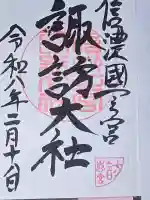 信濃國一之宮
諏訪大社
令和八年二月十日